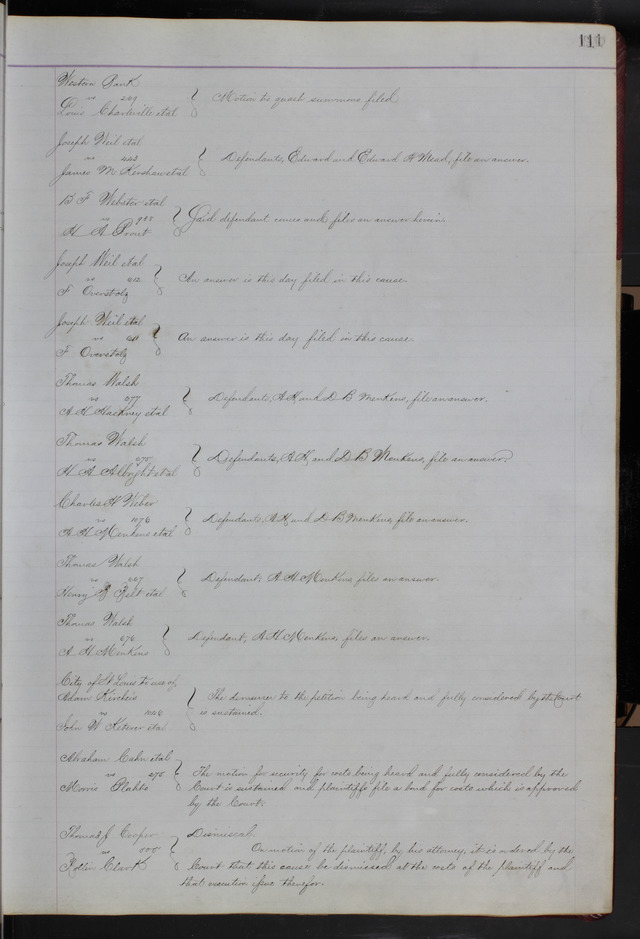 111
Western Bank
vs 249 Motion to quash summons filed
Louis Charleville et al
Joseph Weil et al
vs 443 Defendants, Edward and Edward H Mead, file an answer.
James M Kershaw et al
B F Webster et al
vs Said defendant comes and files an answer herein.
H A Prout
Joseph Weil et al
vs 412 An answer is this day filed in this cause.
F Overstolz
Joseph Weil et al
vs An answer is this day filed in this cause.
F Overstolz
Thomas Walsh
vs 377 Defendants, A H, and D B Menkens, file an answer.
A H Hackney et al
Thomas Walsh
vs 675 Defendants, A H, and D B Menkens, file an answer.
H A Albright et al
Charles H Weber
vs 1076 Defendants, A H, and D B Menkens, file an answer.
A H Menkens et al
Thomas Walsh
vs 667 Defendant, A H Menkens files an answer.
Henry B Belt et al
Thomas Walsh
vs 676 Defendant, A H Menkens, files an answer.
A H Menkens
City of St Louis to use of
Adam The demurrer to the petition being heard and fully considered by the Court
vs is sustained.
John W et al
Abraham Cahn et al
vs 275 The motion for security for costs being heard and fully considered by the
Morris Court is sustained and plaintiffs file a bond for costs which is approved
by the Court.
Thomas J Cooper Dismissal.
vs On motion of the plaintiff, by his attorney, it is ordered by the
Rollin Clark Court that this cause be dismissed at the costs of the plaintiff and
that execution issue therefor.